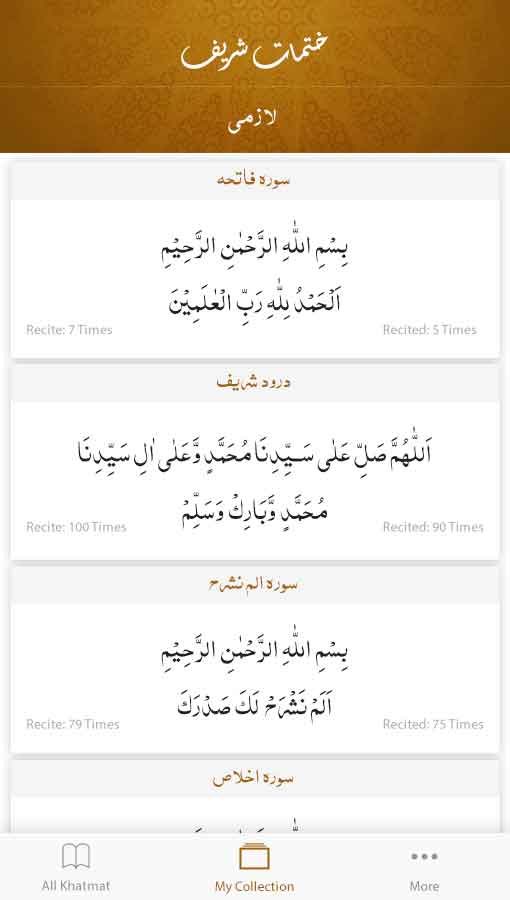 ختمات شریف
لازمی
سورہ فاتحہ
بِسْمِ اللّٰهِ الرَّحْمٰنِ الرَّحِيْمِ
اَلْحَمْدُ لِلّٰهِ رَبِّ الْعٰلَمِيْنَ
Recite: 7 Times
Recited: 5 Times
درود شریف
اَللّٰهُمَّ صَلِّ عَلٰى سَيِّدِنَا مُحَمَّدٍ وَّعَلٰى اٰلِ سَيِّدِنَا
مُحَمَّدٍ وَّبَارِكْ وَسَلِّمْ
Recite: 100 Times
Recited: 90 Times
سورہ الم نشرح
بِسْمِ اللّٰهِ الرَّحْمٰنِ الرَّحِيْمِ
اَلَمْ نَشْرَحْ لَكَ صَدْرَكَ
Recite: 79 Times
Recited: 75 Times
سورہ اخلاص
All Khatmat
My Collection
More